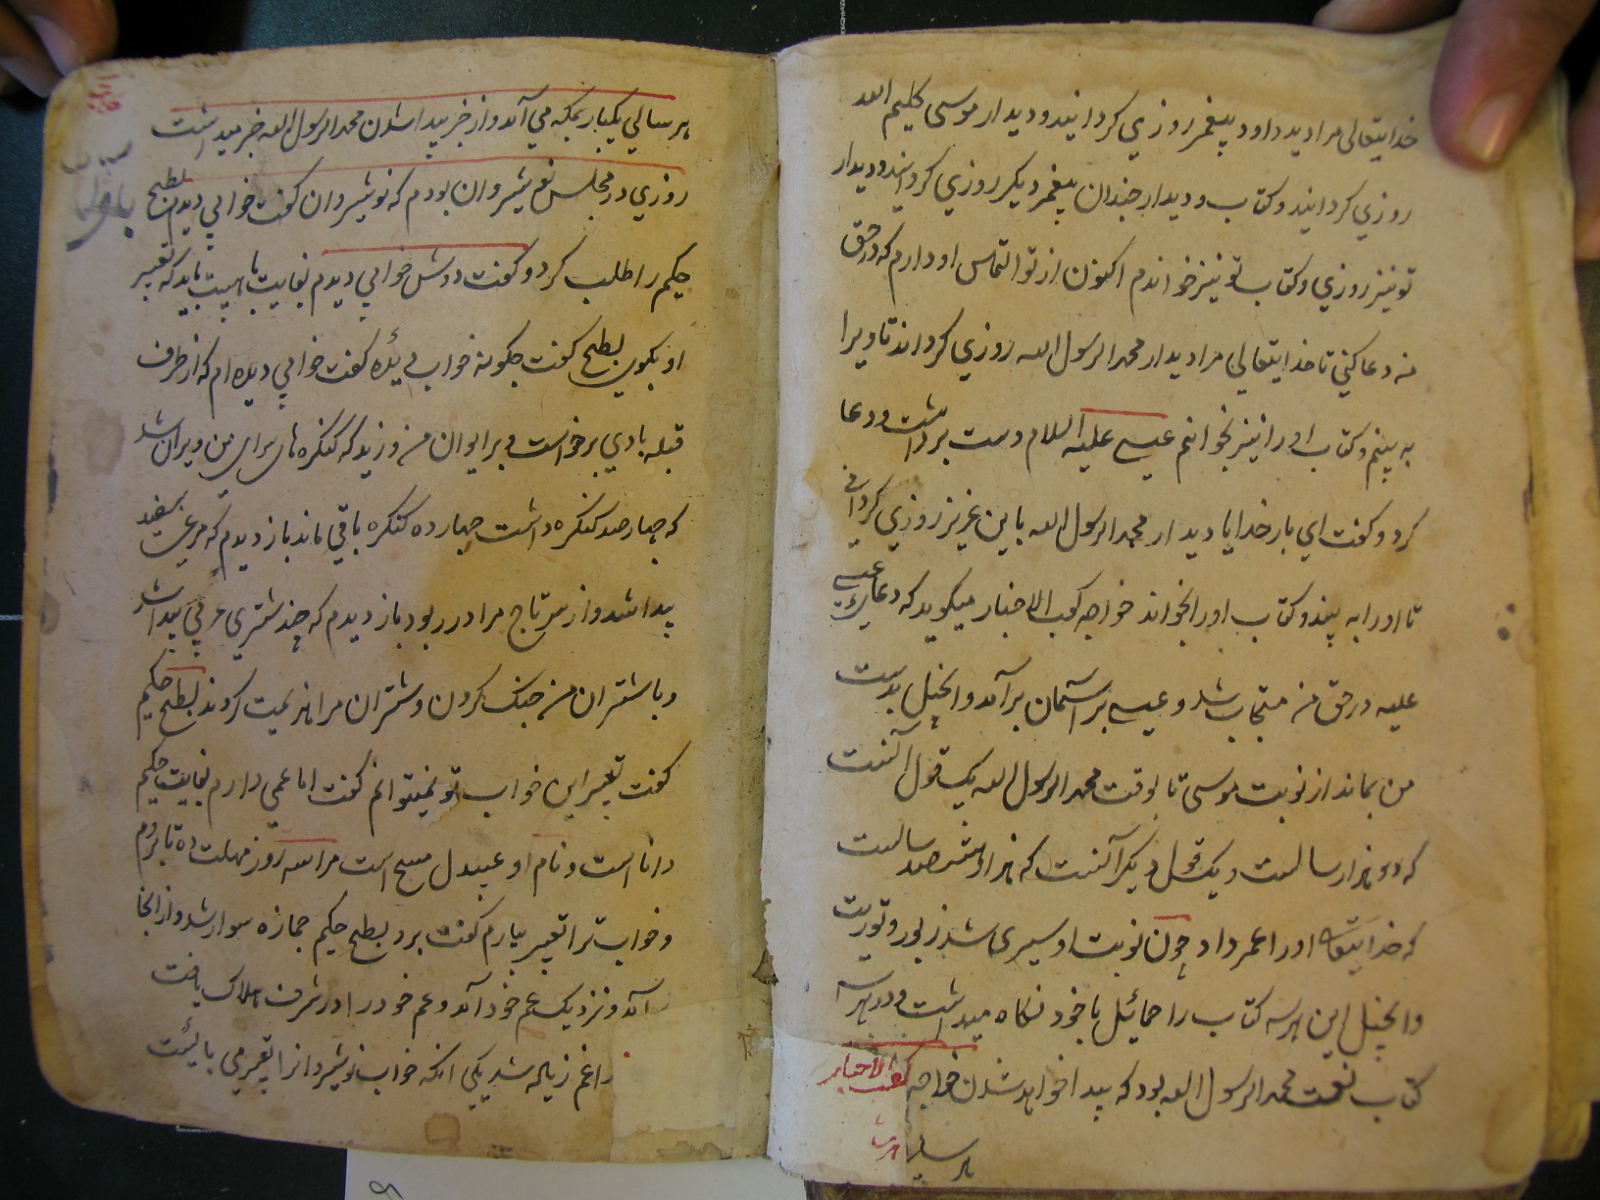 خدایتعالی مرا دیدار داود پیغمبر روزي کردانید و دیدار موسی کلیم الله
روزي کردانید و کتاب و دیدار چندان پیغمبر دیکر روزي کردانید و دیدار
تو نیز روزي و کتاب تو نیز خواندم اکنون از تو التماس او دارم که در حق
من دعا کني تا خدایتعالي مرا دیدار محمد الرسول الله روزي کرداند تا ویرا
به بینم و کتاب اورا نیز بخوانم عیسی علیه السلام دست برداشت و دعا
کرد و کفت اي بار خدایا دیدار محمد الرسول الله باین عزیز روزي کرداني
تا اورا به بیند و کتاب اورا بخواند خواجه کعب الاخبار میکوید که دعای عیسی
علیه در حق من مستجاب شد و عیسی بر آسمان برآمد و انجیل بدست
من بماند از نوبت موسی تا بوقت محمد الرسول الله یک قول آنست
که دو هزار سالست و یک قول دیکر آنست که هزار و ششصد سالست
که خدایتعالی اورا عمر داد چون نوبت او سپری شد زبور و توریت
و انجیل این هر سه کتاب را حمائیل با خود نکاه میداشت و در هر سه
کتاب نعمت محمد الرسول الله بود که پیدا خواهد شدن خواجه کعب الاخبار
هر سالي
هر سالي یکبار بمکه مي آمد و از خبر پیدا شدن محمد الرسول الله خبر میداشت
روزي در مجلس نوشیروان بودم که نوشیروان کفت خوابي دیدم بطیح
حکیم را طلب کرد و کفت دوش خوابي دیدم بغایت با هیبت باید که تعبیر
او بکوي بطیح کفت چکونه خواب دیده کفت خوابي دیده ام که از طرف
قبله بادي برخواست و بر ایوان من وزید که کنکره های سرای من ویران شد
که چهار صد کنکره داشت چهارده کنکره باقي ماند باز دیدم که مرغي سفید
پیدا شد و از سر تاج مرا در ربود باز دیدم که چند شتري عربي پیدا شد
و با شتران من جنک کردن و شتران مرا هزیمت کردند بطیح حکیم
کفت تعبیر این خواب تو نمیتوانم کفت اما عمي دارم بغایت حکیم
دانا است و نام او عبیدل مسیح است مرا سه روز مهلت ده تا بروم
و خواب ترا تعبیر بیارم کفت برو بطیح حکیم جمازه سوار شد و از انجا
آمد و نزدیک عم خود آمد و عم خود را در شرف هلاک یافت
را غم زیاده شد یکي انکه خواب نوشیروانرا تعبیر مي بایست